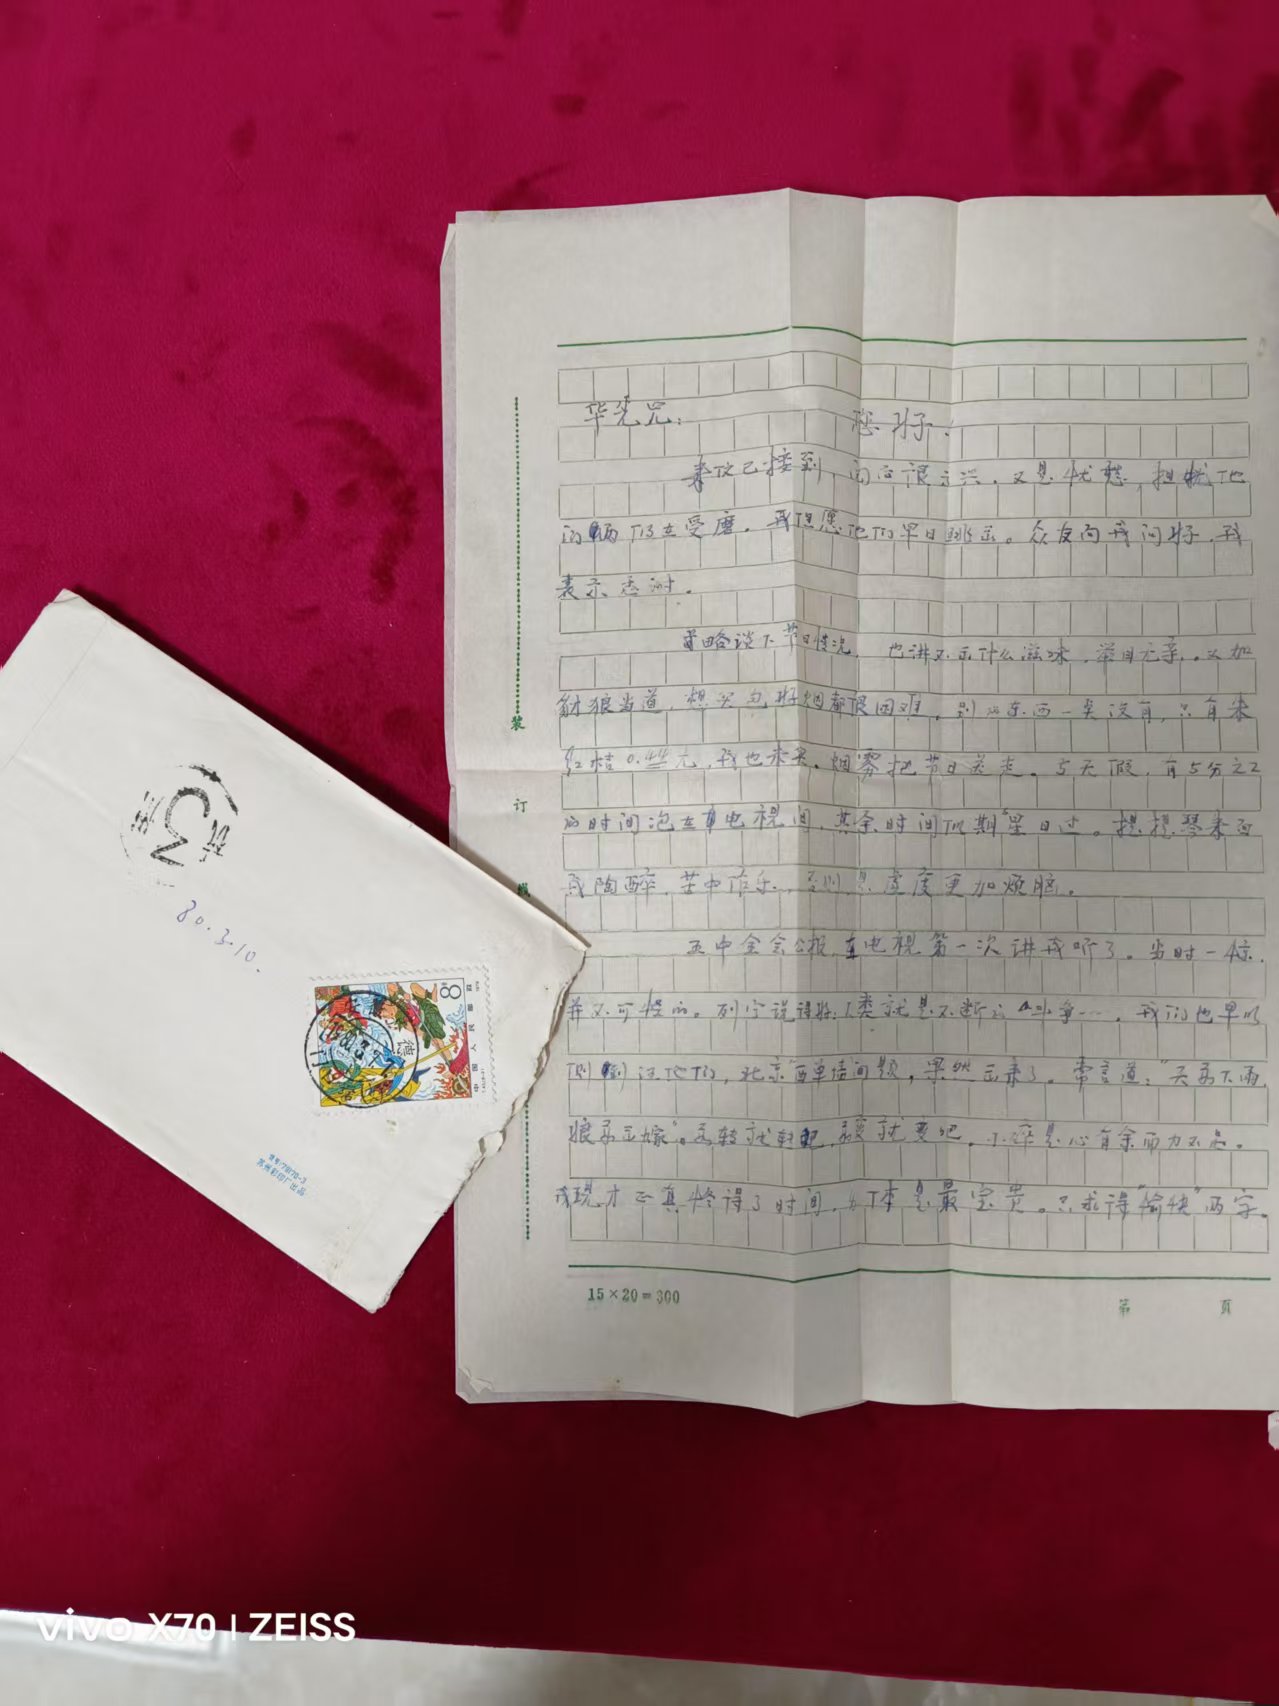 华先兄：
您好！
来信已接到，阅后很高兴。又是忧愁，担忧他
的病 在受磨。我但愿他们早日跳出。众友向我问好，我
表示感谢。
简略谈下节日情况，也讲不出什么滋味，举目无亲。又加
豺狼当道，想买包好烟都很困难。别的东西一类没有，只有朱
红桔0.44元，我也未买。烟雾把节日送走。5天假，有5分之2
的时间泡在电视间，其余时间 期星日过。提提琴来自
我陶醉，苦中作乐，否则是虚度更加烦脑。
五中全会公报，在电视第一次讲我听了。当时一惊，
并不可怪的。列宁说得好：人类就是不断的 争……。我们也早以
测 过他们，北京西单墙问题，果然出来了。常言道：“天要下雨，
娘要出嫁”。要转就转吧，要变就变吧。 是心有余而力不足。
我现才正真懂得了时间，身体是最宝贵。只求得“愉快”两字。
装
订
线
15×20=300
第 页
80.3.10.
8
中国人民邮政
德
苏州彩印厂出品
vivo X70 | ZEISS